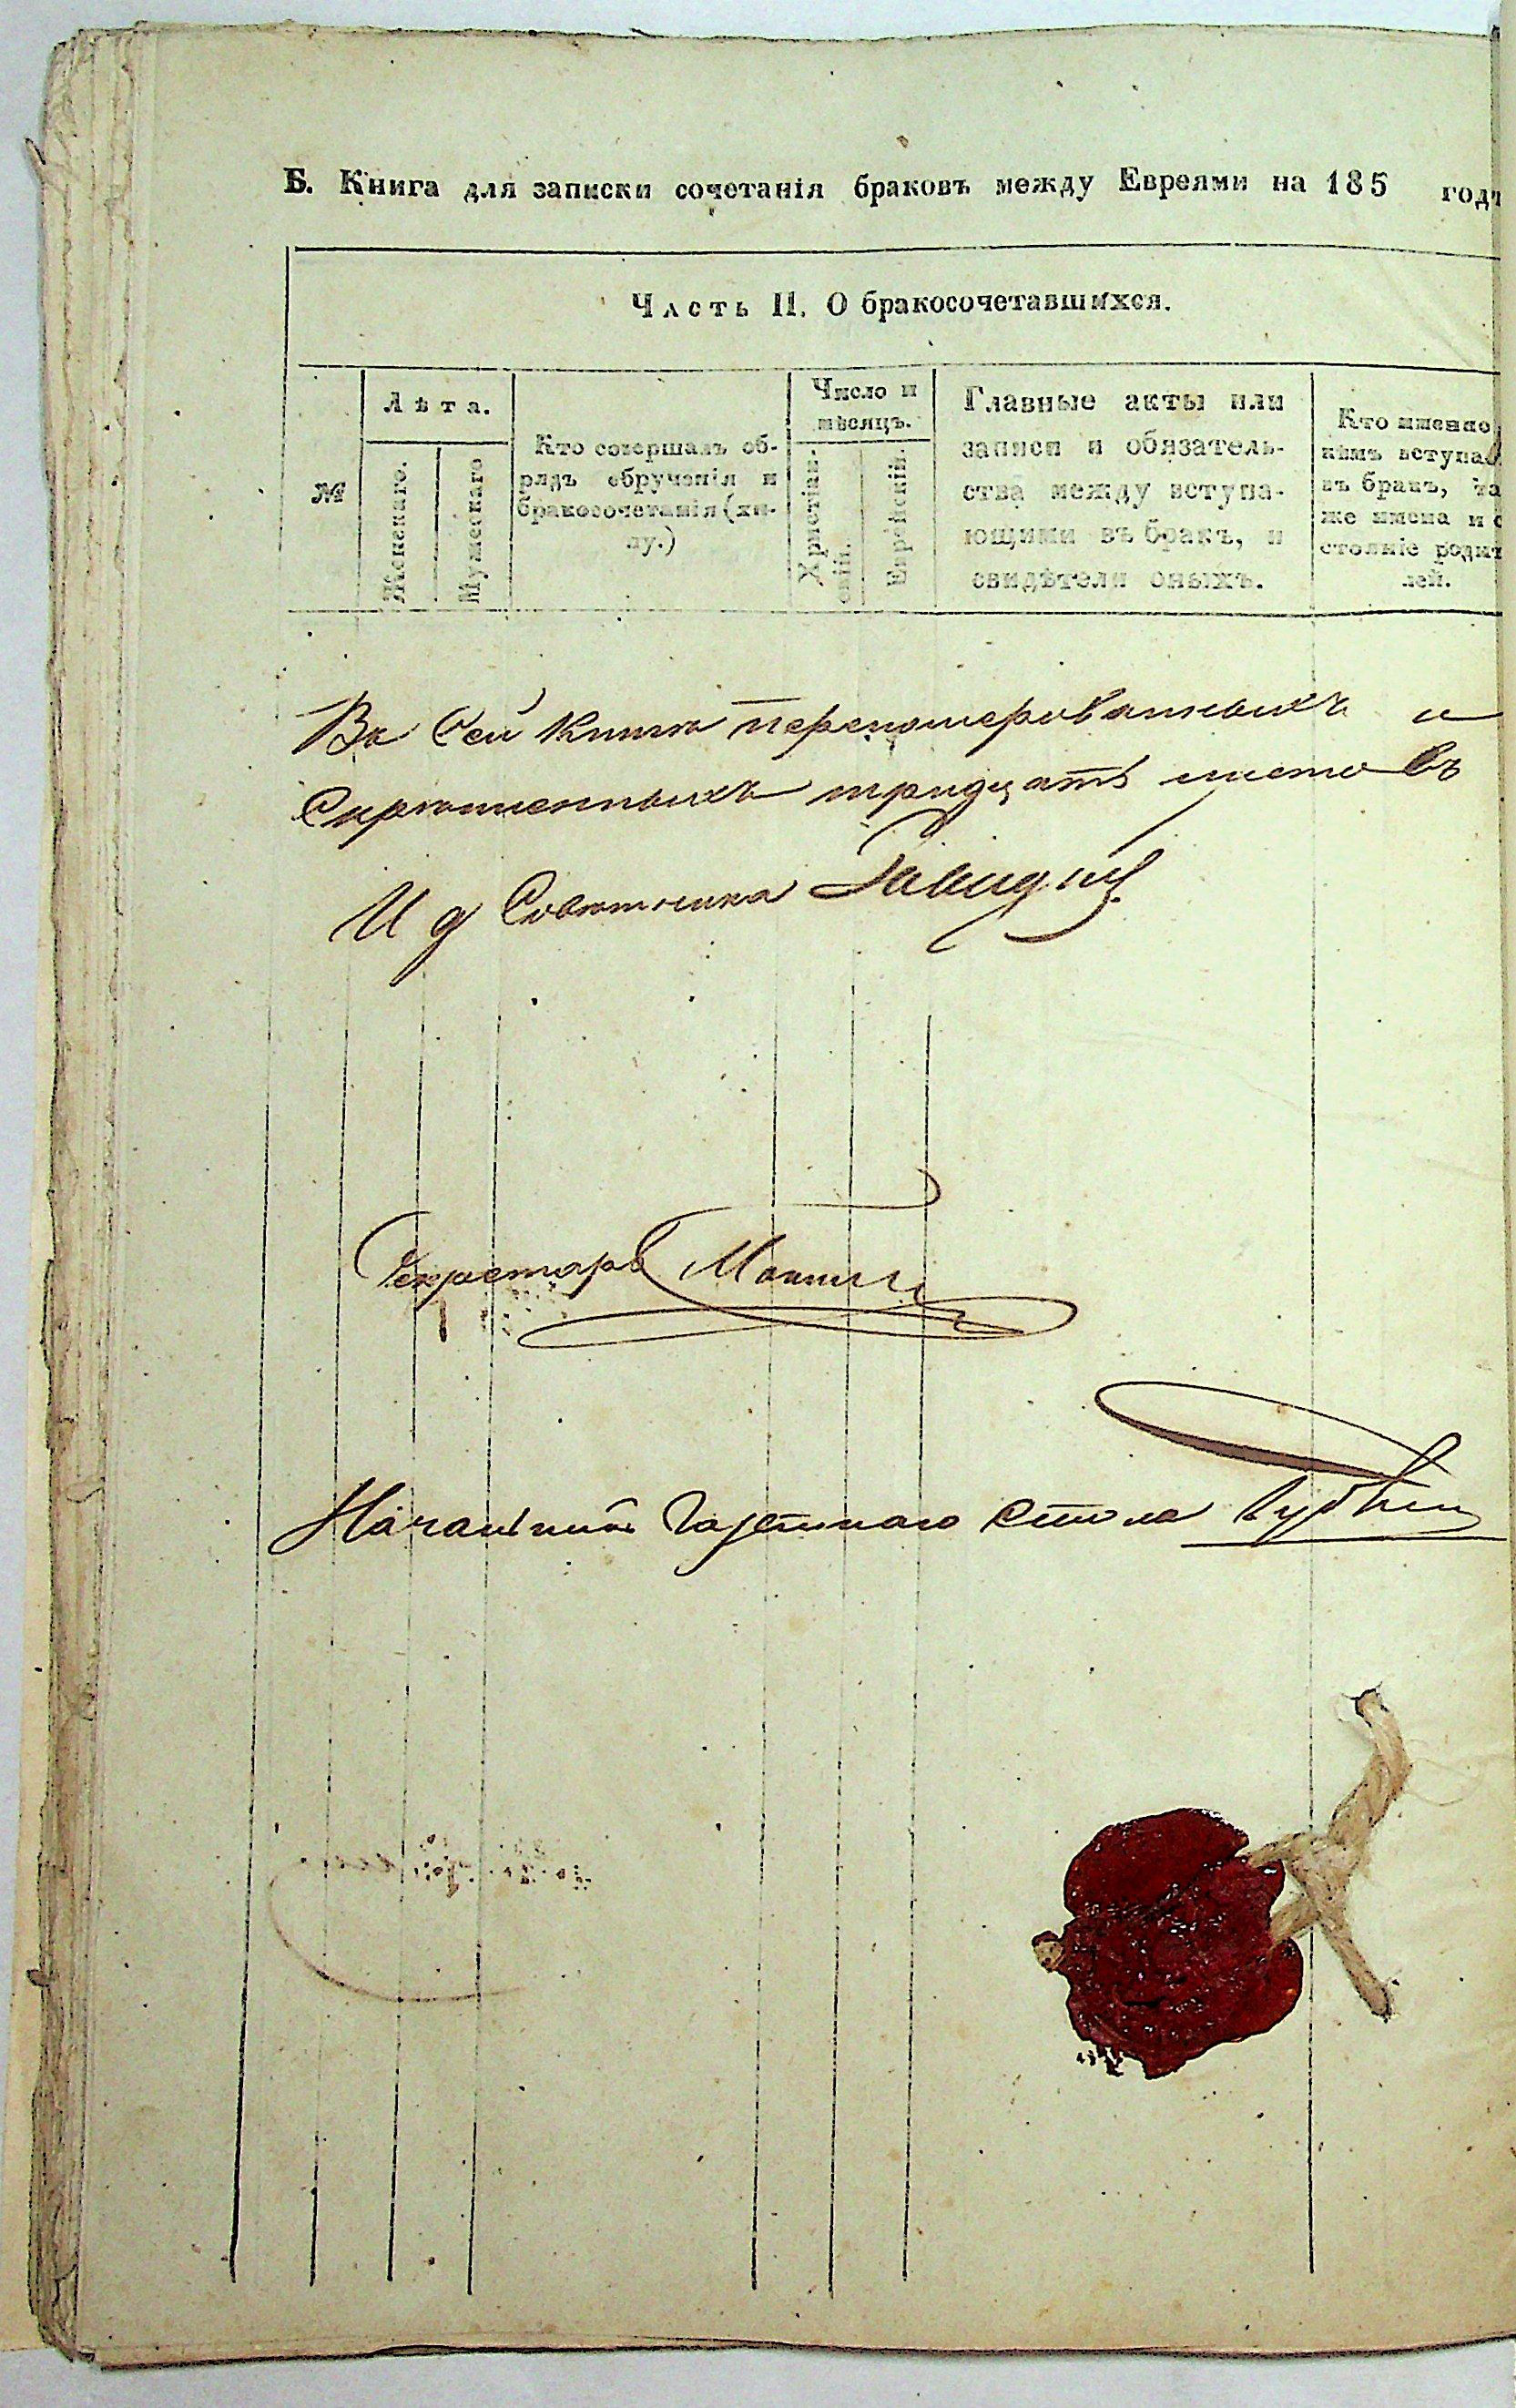 Б. Книга для записки сочетанія браковъ между Евреями на 185 годъ
Часть II. О бракосочетавшихся.
№
Лѣта.
Женскаго.
Мужескаго
Кто совершалъ об-
рядъ обрученія и
бракосочетанія (хи-
пу.)
Число и
мѣсяцъ.
Христіан-
скій.
Еврейскій.
Главные акты или
записи и обязатель-
ства между вступа-
ющими въ бракъ, и
свидѣтели оныхъ.
Кто именно
кѣмъ вступа
въ бракъ, та
же имена и с
стояніе родит
лей.
Въ Сей Книгѣ переномерованныхъ и
Скрѣпленныхъ тридцать листовъ
И д Совѣтника
Секретарь
Начальникъ Газетнаго Стола